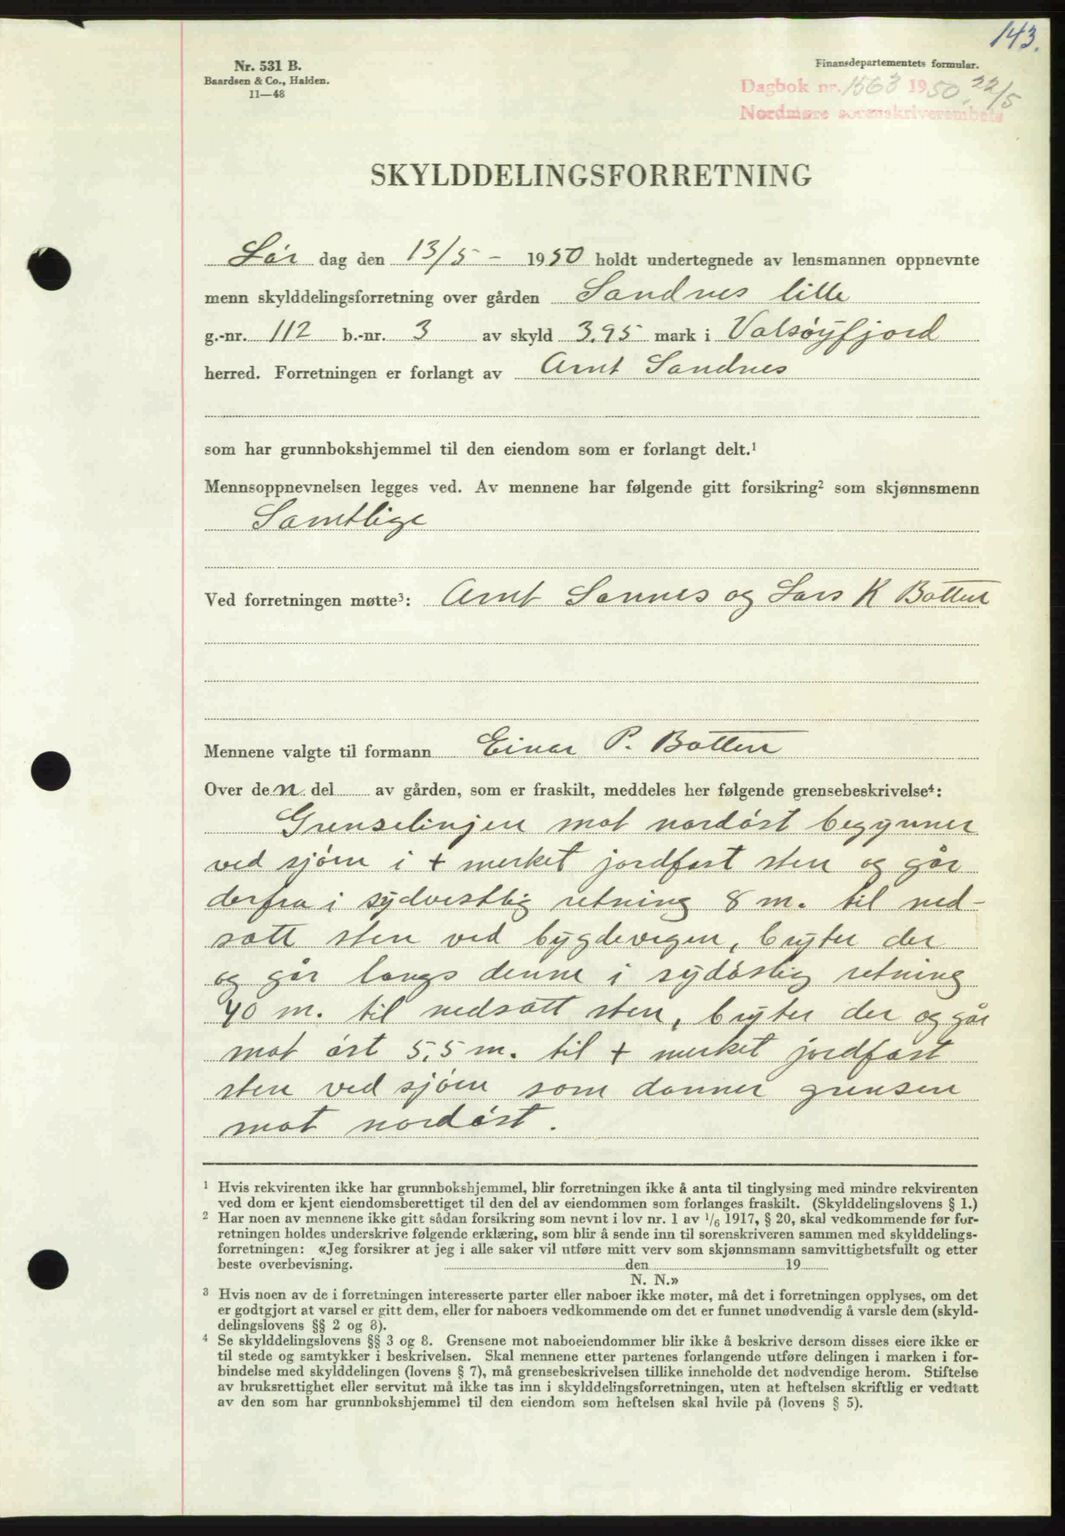 143.
Nr. 531 B.
Baardsen & Co., Halden.
11—48
Finansdepartementets formular.
Dagbok nr. 1563 1950. 22/5
Nordmøre sorenskriverembete
SKYLDDELINGSFORRETNING
Lør dag den 13/5 - 1950 holdt undertegnede av lensmannen oppnevnte
menn skylddelingsforretning over gården Sandnes lille
g.-nr. 112 b.-nr. 3 av skyld 3.95 mark i Valsøyfjord
herred. Forretningen er forlangt av Arnt Sandnes
som har grunnbokshjemmel til den eiendom som er forlangt delt.¹
Mennsoppnevnelsen legges ved. Av mennene har følgende gitt forsikring² som skjønnsmenn
Samtlige
Ved forretningen møtte³: Arnt Sannes og Lars K Botten
Mennene valgte til formann Einar P. Botten
Over den del av gården, som er fraskilt, meddeles her følgende grensebeskrivelse⁴:
Grenselinjen mot nordøst begynner
ved sjøen i + merket jordfast sten og går
derfra i sydvestlig retning 8 m. til ned-
satt sten ved bygdevegen, bryter der
og går langs denne i sydøstlig retning
40 m. til nedsatt sten, bryter der og går
mot øst 5,5 m. til + merket jordfast
sten ved sjøen som danner grensen
mot nordøst.
¹ Hvis rekvirenten ikke har grunnbokshjemmel, blir forretningen ikke å anta til tinglysing med mindre rekvirenten
ved dom er kjent eiendomsberettiget til den del av eiendommen som forlanges fraskilt. (Skylddelingslovens § 1.)
² Har noen av mennene ikke gitt sådan forsikring som nevnt i lov nr. 1 av ¹/₆ 1917, § 20, skal vedkommende før for-
retningen holdes underskrive følgende erklæring, som blir å sende inn til sorenskriveren sammen med skylddelings-
forretningen: «Jeg forsikrer at jeg i alle saker vil utføre mitt verv som skjønnsmann samvittighetsfullt og etter
beste overbevisning. den 19
N. N.»
³ Hvis noen av de i forretningen interesserte parter eller naboer ikke møter, må det i forretningen opplyses, om det
er godtgjort at varsel er gitt dem, eller for naboers vedkommende om det er funnet unødvendig å varsle dem (skyld-
delingslovens §§ 2 og 8).
⁴ Se skylddelingslovens §§ 3 og 8. Grensene mot naboeiendommer blir ikke å beskrive dersom disses eiere ikke er
til stede og samtykker i beskrivelsen. Skal mennene etter partenes forlangende utføre delingen i marken i for-
bindelse med skylddelingen (lovens § 7), må grensebeskrivelsen tillike inneholde det nødvendige herom. Stiftelse
av bruksrettighet eller servitut må ikke tas inn i skylddelingsforretningen, uten at heftelsen skriftlig er vedtatt
av den som har grunnbokshjemmel til den eiendom som heftelsen skal hvile på (lovens § 5).